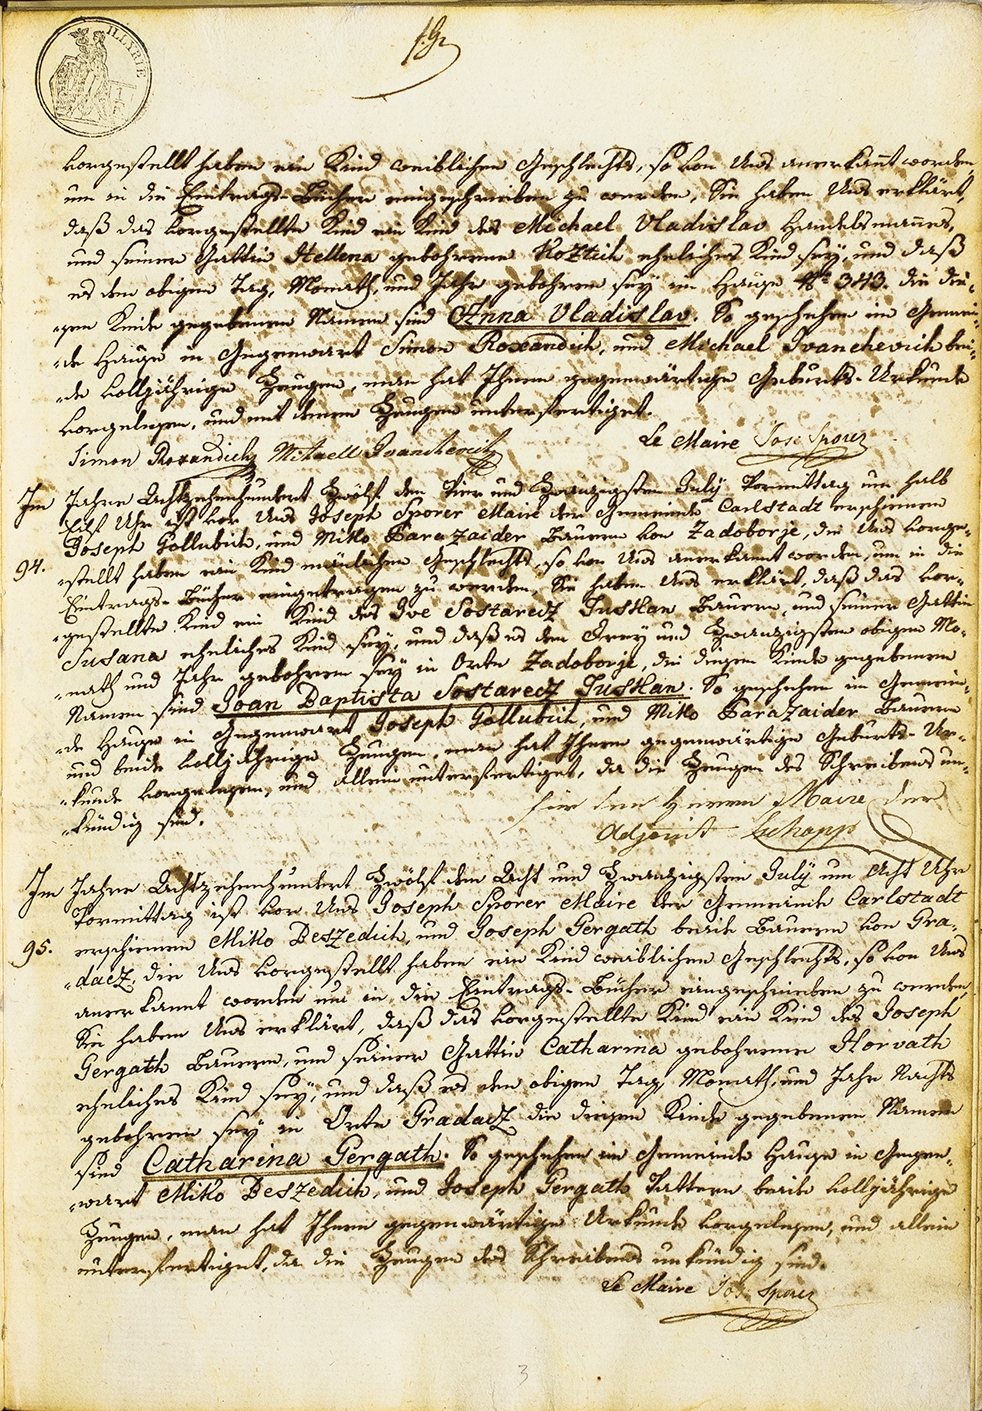 ILLYRIE
19
vorgestellt haben ein Kind weiblichen Geschlechts, so von Uns anerkannt worden,
um in die Eintrags-Bücher eingeschrieben zu werden, Sie haben Uns erklärt,
daß das vorgestellte Kind ein Kind des Michael Vladislav Handelsmannes,
und seiner Gattin Hellena gebohrene Koztich eheliches Kind sey, und daß
es den obigen Tag, Monath, und Jahr gebohren sey im Hause No 343. die die-
-sem Kinde gegebenen Namen sind Anna Vladislav. So geschehen im Gemein-
-de Hause in Gegenwart Simon Roxandich, und Michael Ivanchevich bei-
-de volljährige Zeugen, man hat Ihnen gegenwärtige Geburts-Urkunde
vorgelesen, und mit denen Zeugen unterfertiget.
Le Maire Jos Sporer
Simon Roxandich Mihaell Ivanchevich
Im Jahre Achtzehenhundert Zwölf den Vier und Zwanzigsten July Vormittag um halb
Eilf Uhr ist vor Uns Joseph Sporer Maire der Gemeinde Carlstadt erschienen
Joseph Gollubich, und Miko Barazaider Bauern von Zadoborje, die Uns vorge-
94.
-stellt haben ein Kind männlichen Geschlechts, so von Uns anerkannt worden, um in die
Eintrags-Bücher eingetragen zu werden, Sie haben Uns erklärt, daß das vor-
-gestellte Kind ein Kind des Ive Sostarecz Juskan Bauern, und seiner Gattin
Susana eheliches Kind sey, und daß es den Drey und Zwanzigsten obigen Mo-
-nath und Jahr gebohren sey in Orte Zadoborje, die diesem Kinde gegebenen
Namen sind Joan Baptista Sostarecz Juskan. So geschehen im Gemein-
-de Hause in Gegenwart Joseph Gollubich, und Miko Barazaider Bauern
und beide volljährige Zeugen, man hat Ihnen gegenwärtige Geburts-Ur-
-kunde vorgelesen, und allein unterfertiget, da die Zeugen des Schreibens un-
-kündig sind.
für den Herrn Maire der
Adjoint
Im Jahre Achtzehenhundert Zwölf den Acht und Zwanzigsten July um Acht Uhr
Vormittag ist vor Uns Joseph Sporer Maire der Gemeinde Carlstadt
95.
erschienen Miko Beszedich, und Joseph Gergath beide Bauern von Gra-
-dacz, die Uns vorgestellt haben ein Kind weiblichen Geschlechts, so von Uns
anerkannt worden um in die Eintrags-Bücher eingeschrieben zu werden,
Sie haben Uns erklärt, daß das vorgestellte Kind ein Kind des Joseph
Gergath Bauern, und seiner Gattin Catharina gebohrene Horvath
eheliches Kind sey, und daß es den obigen Tag, Monath, und Jahr Nachts
gebohren sey in Orte Gradacz die diesem Kinde gegebenen Namen
sind Catharina Gergath. So geschehen im Gemeinde Hause in Gegen-
-wart Miko Beszedich, und Joseph Gergath Vattern beide volljährige
Zeugen, man hat Ihnen gegenwärtige Urkunde vorgelesen, und allein
unterfertiget, da die Zeugen des Schreibens unkündig sind.
Le Maire Jos Sporer
3